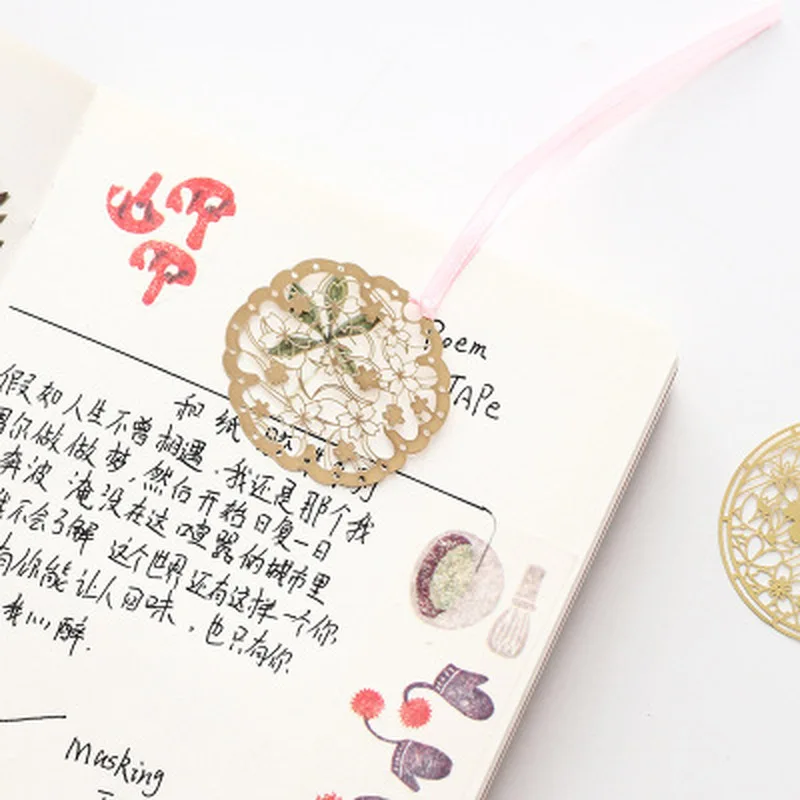 Poem
TAPe
和纸
假如人生不曾相遇,我还是那个我
偶尔做做梦,然后开始日复一日
奔波 淹没在这喧嚣的城市里
不会了解 这个世界还有这样一个你
有你能让人回味,也只有你
我心醉.
Masking